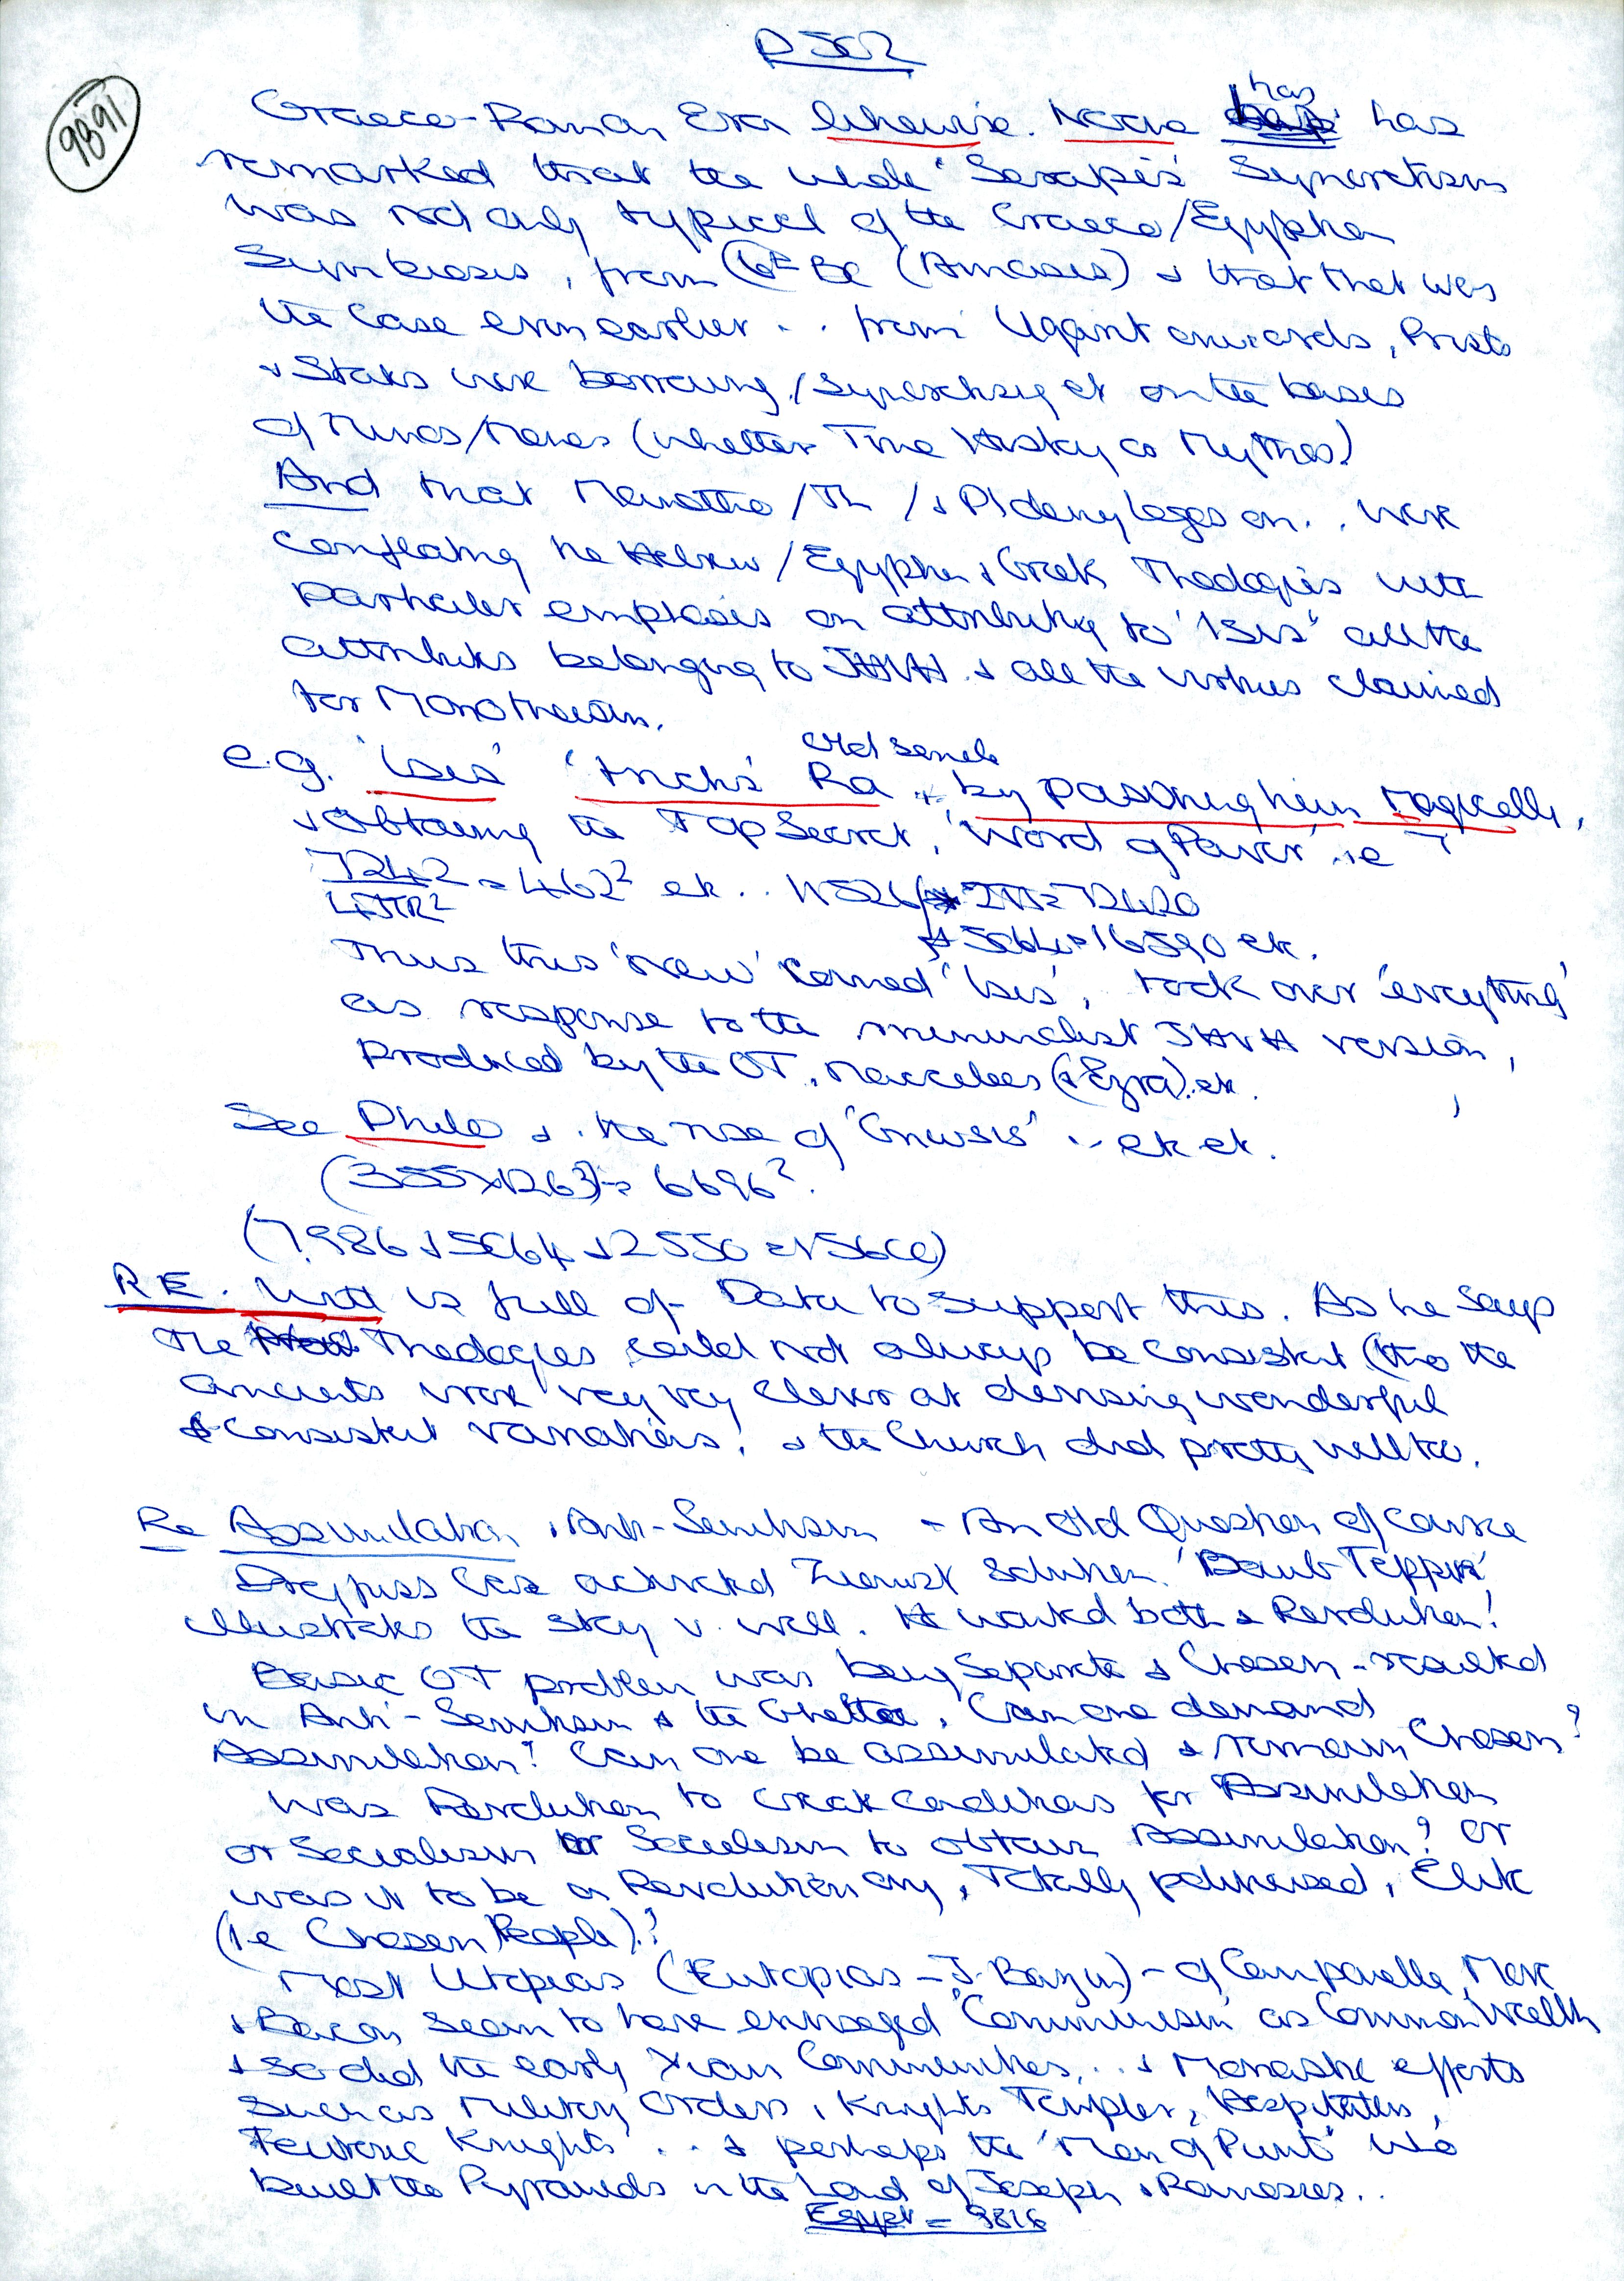 P 502
9891
Graeco-Roman Era likewise. has has
remarked that the whole 'Serapis' Syncretism
was not only typical of the Graeco/Egyptian
Symbiosis, from 6th BC (Amasis) & that that was
the case even earlier .. from Ugarit onwards, Priests
& States were borrowing/syncretising etc on the basis
of Minos/Menes (whether True History or Mythos)
And that Manetho/Th/& Ptolemy Lagos on.. were
conflating the Hebrew/Egyptian & Greek Theologies with
particular emphasis on attributing to 'Isis' all the
attributes belonging to JHVH & all the virtues claimed
for Monotheism.
old senile
e.g. 'Isis' 'tricks' Ra & by poisoning him magically,
& obtaining the Top Secret, 'Word of Power' ie
= 462² etc ..
5064 = 16590 etc.
Thus this 'new' 'Isis', took over 'everything'
as response to the minimalist JHVH version,
produced by the OT, Maccabees (& Ezra) etc.
See Philo & the rise of 'Gnosis' .. etc etc.
(355x1263) = 6696².
(7.986 & 5064 & 2550 = 15600)
R E. Witt is full of Data to support this. As he says
the Theologies could not always be consistent (tho the
ancients were very very clever at devising wonderful
& consistent variations! & the Church did pretty well too.
Re Assimilation & Anti-Semitism - An old Question of course
Dreyfuss Case activated Zionist Solution.
illustrates the story v. well. He wanted both & Revolution!
Basic OT problem was being Separate & Chosen - resulted
in Anti-Semitism & the Ghetto. Can one demand
Assimilation? Can one be assimilated & remain Chosen?
Was Revolution to create conditions for Assimilation
or Socialism or Secularism to obtain Assimilation? or
was it to be a Revolutionary, Totally politicised, Elite
(i.e Chosen People)?
Most Utopias (Eutopias - J. Barzun) - of Campanella, More
& Bacon seem to have envisaged 'Communism' as Common Wealth
& so did the early Xian Communities, .. & Monastic efforts
such as Military Orders, Knights Templer, Hospitallers,
Teutonic Knights .. & perhaps the 'Men of Punt' who
built the Pyramids in the Land of Joseph & Rameses..
Egypt = 9816